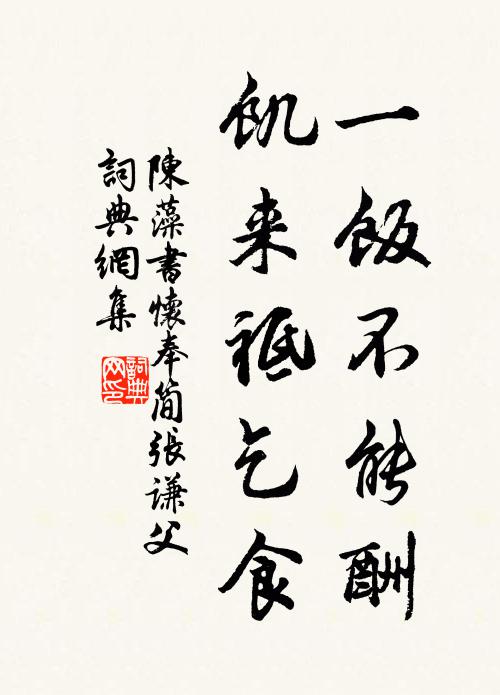 一飯不能酬
飢来祗乞食
陳藻書懷奉簡張謙父
詞典網集
詞典
网印